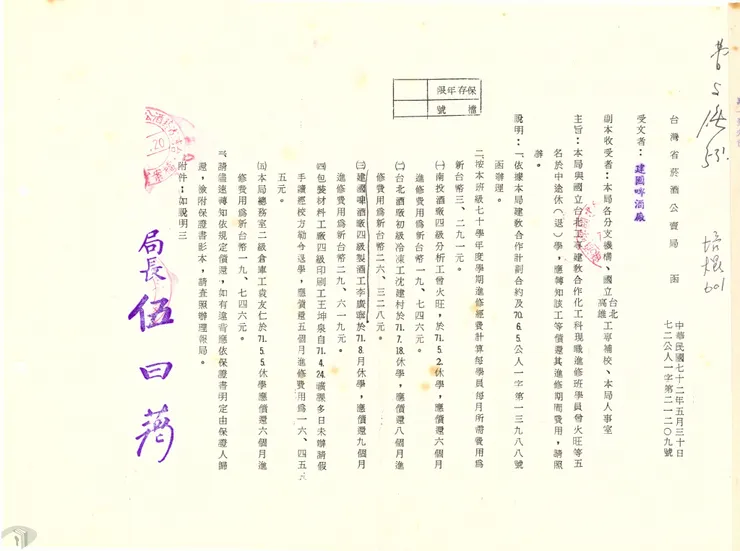 保存年限
檔號
台灣省菸酒公賣局 函
中華民國七十二年五月三十日
七二公人一字第二一二〇九號
受文者:建國啤酒廠
副本收受者:本局各分支機構、國立台北高雄工專補校、本局人事室
主旨:本局與國立台北工專建教合作化工科現職進修班學員曾火旺等五
名於中途休(退)學,應轉知該工等償還其進修期間費用,請照
辦。
說明:一、依據本局建教合作計劃合約及70.6.5公人一字第一三九八八號
函辦理。
二、按本班級七十學年度學期進修經費計算每學員每月所需費用為
新台幣三、二九一元。
㈠南投酒廠四級分析工曾火旺,於71.5.2.休學,應償還六個月
進修費用為新台幣一九、七四六元。
㈡台北酒廠初級冷凍工沈建村於71.7.18.休學,應償還八個月進
修費用為新台幣二六、三二八元。
㈢建國啤酒廠四級製酒工李廣寧於71.8.月休學,應償還九個月
進修費用為新台幣二九、六一九元。
㈣包裝材料工廠四級印刷工王坤泉自71.4.24曠課多日未辦請假
手續經校方勒令退學,應償還五個月進修費用為一六、四五
五元。
㈤本局總務室二級倉庫工袁友仁於71.5.5.休學應償還六個月進
修費用為新台幣一九、七四六元。
三、請儘速轉知依規定償還,如有違背應依保證書明定由保證人歸
還,檢附保證書影本,請查照辦理報局。
附件:如說明三
局長 伍曰藹